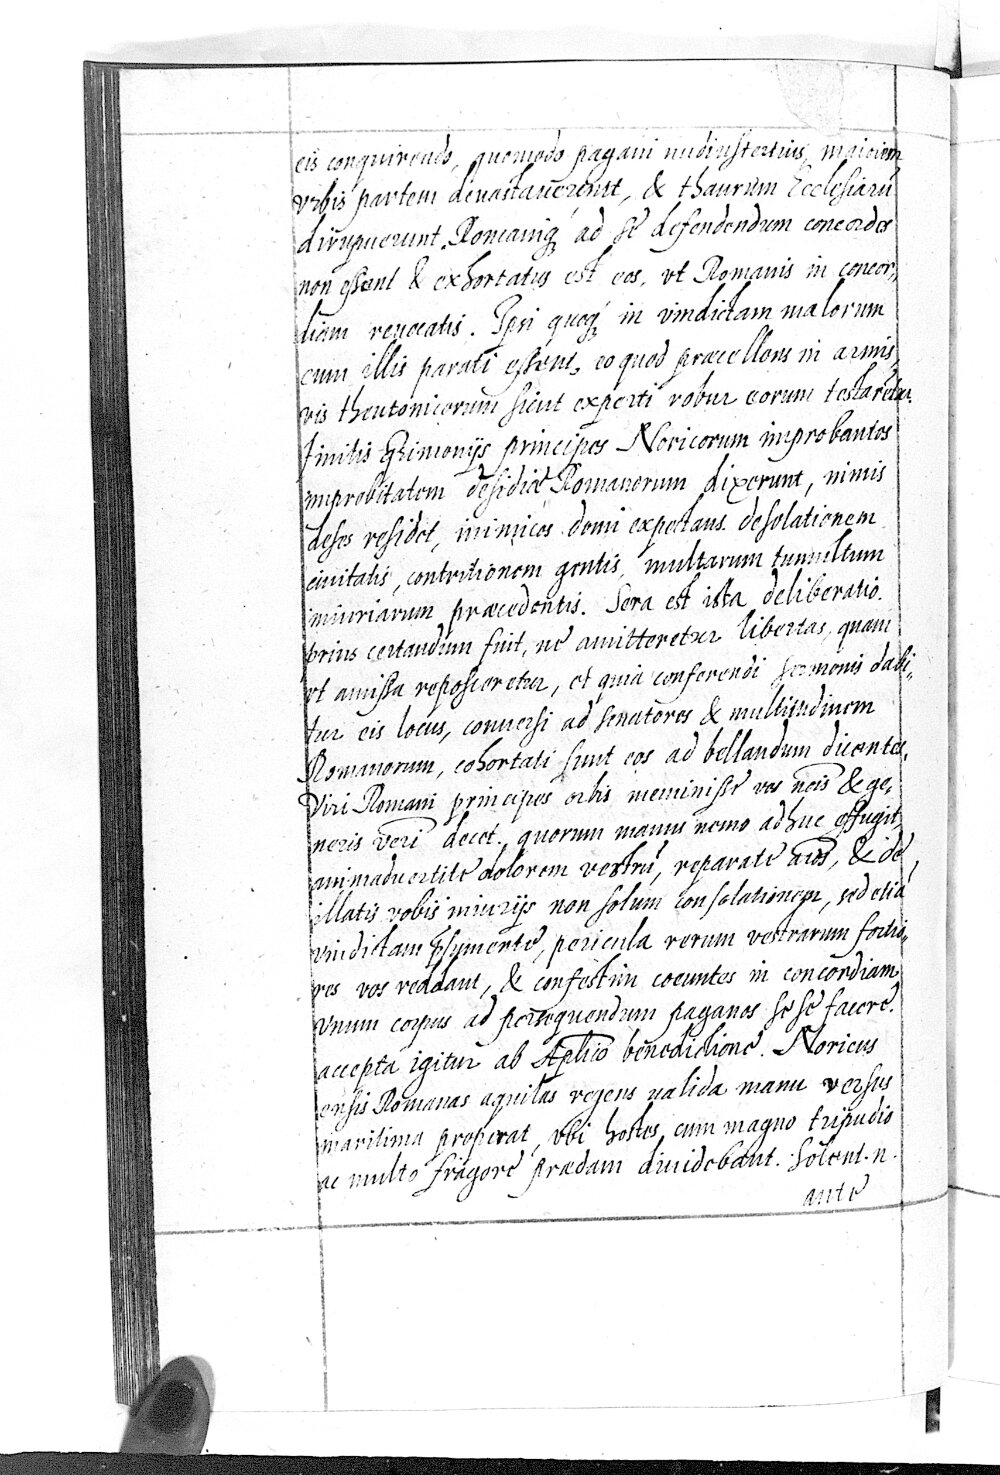 eis conquirendo, quomodo pagani nudiustertius, maiorem
vrbis partem deuastauerunt, & thaurum Ecclesiarũ
dirupuerunt, Romaniq́ ad se defendendum concordes
non essent & exhortatus est eos, vt Romanis in concor„
diam reuocatis. Ipsi quoq́ in vindictam malorum
cum illis parati essent, eo quod præcellens in armis
vis theutonicorum sicut experti robur eorum testaretur
finitis principes Noricorum improbantes
improbitatem desidiæ Romanorum dixerunt, nimis
deses residet, inimicos domi expectans desolationem
ciuitatis, contritionem gentis, multarum tumultum
iniuriarum præcedentis. Sera est ista deliberatio.
prius certandum fuit, ne amitteretur libertas, quam
vt amissa reposceretur, et quia conferendi sermonis dabi„
tur eis locus, conuersi ad senatores & multitudinem
Romanorum, cohortati sunt eos ad bellandum dicentes.
Viri Romani principes orbis meminisse vos nõis & ge„
neris veri decet, quorum manus nemo adhuc effugit,
animaduertite dolorem vestrũ, reparate aiõs, & de
illatis vobis iniurijs non solum consolationem, sed etiã
vindictam sumente, pericula rerum vestrarum fortio„
res vos reddant, & confestim coeuntes in concordiam
vnum corpus ad persequendum paganos se se facere.
accepta igitur ab Aplico benedictione. Noricus
ensis Romanas aquilas regens ualida manu versus
maritima properat, vbi hostes cum magno tripudio
ac multo fragore prædam diuidebant. Solent. n.
ante